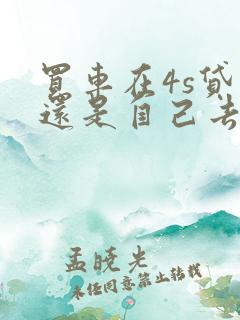 買車在4s貸
還是自己去
孟曉光
未经同意禁止转载